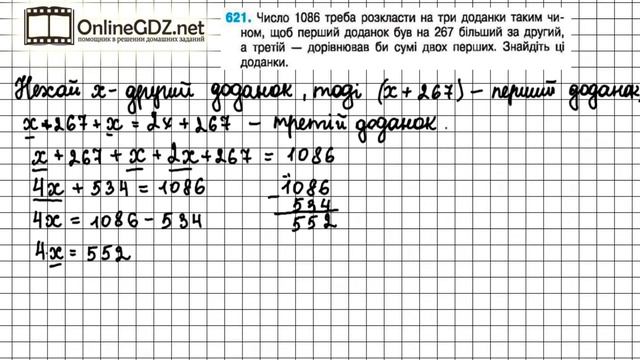 OnlineGDZ.net
помощник в решении домашних заданий
621. Число 1086 треба розкласти на три доданки таким чи-
ном, щоб перший доданок був на 267 більший за другий,
а третій — дорівнював би сумі двох перших. Знайдіть ці
доданки.
Нехай x - другий доданок, тоді (x + 267) - перший доданок,
x + 267 + x = 2x + 267 - третій доданок.
x + 267 + x + 2x + 267 = 1086
4x + 534 = 1086
4x = 1086 - 534
4·x = 552
- 1086
534
552